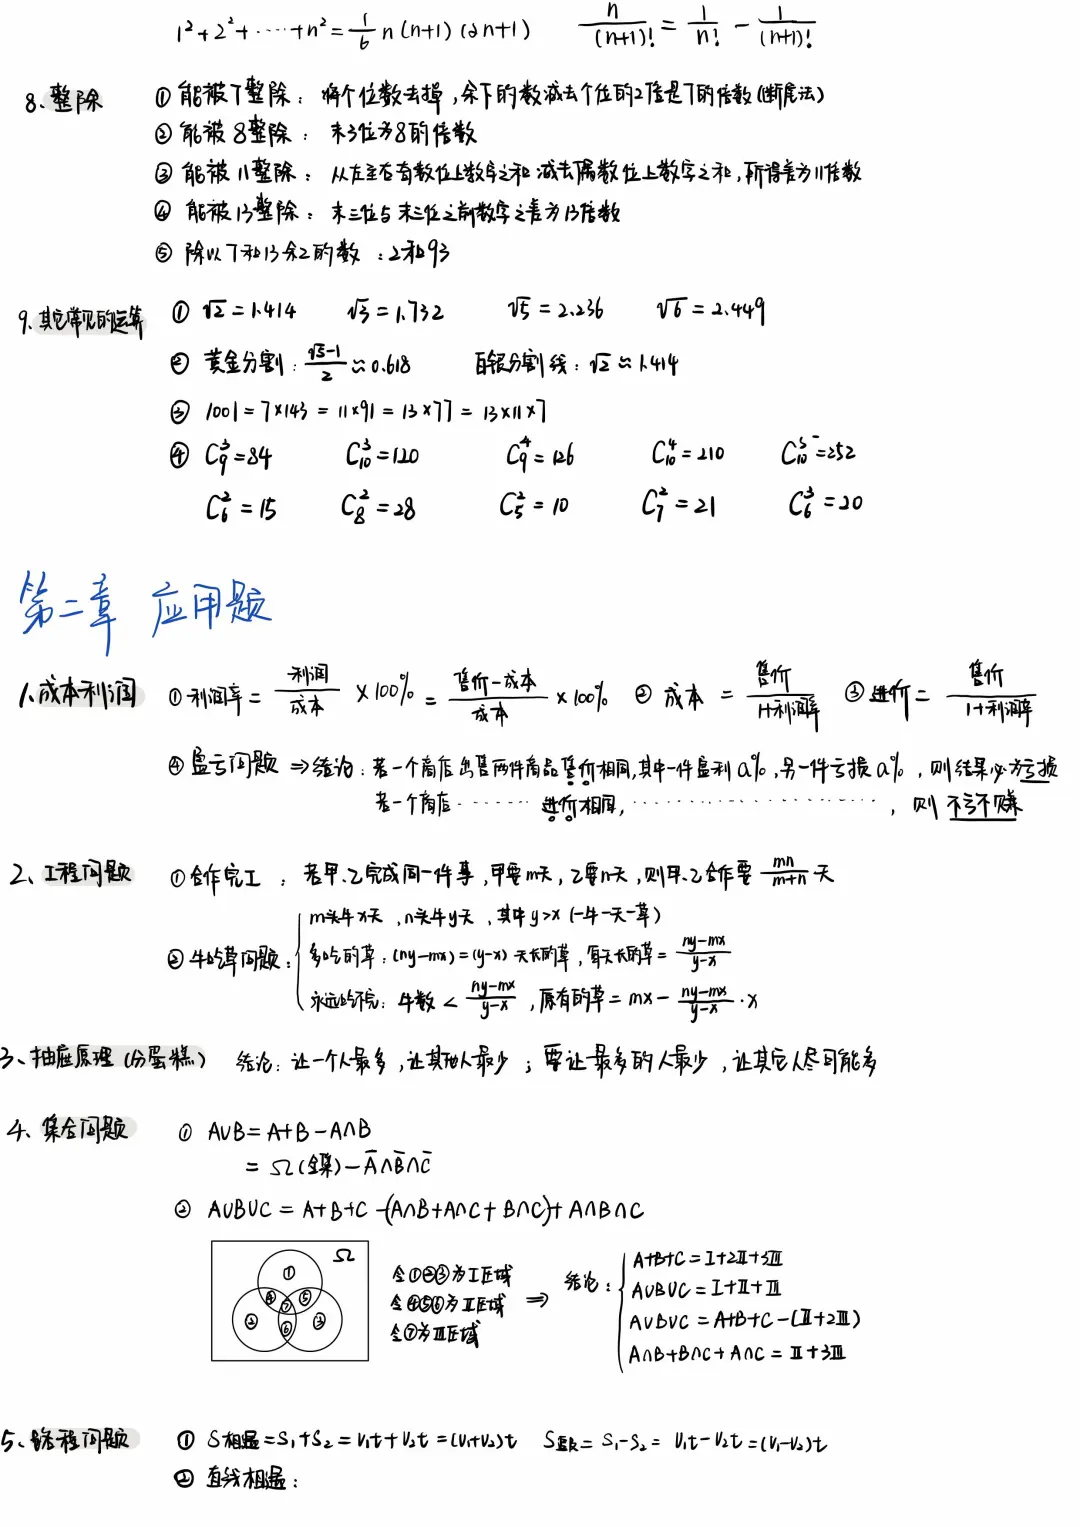 1²+2²+······+n²=1/6 n(n+1)(2n+1)  n/(n+1)! = 1/n! − 1/(n+1)!
8、整除 ① 能被7整除：将个位数去掉,余下的数减去个位的2倍是7的倍数(断尾法)
② 能被8整除：末3位为8的倍数
③ 能被11整除：从左至右奇数位上数字之和减去偶数位上数字之和,所得差为11倍数
④ 能被13整除：末三位与末三位之前数字之差为13倍数
⑤ 除以7和13余2的数：2和93
9.其它常见的运算 ① √2=1.414  √3=1.732  √5=2.236  √6=2.449
② 黄金分割：(√5-1)/2≈0.618  白银分割线：√2≈1.414
③ 1001=7×143=11×91=13×77=13×11×7
④ C₉³=84  C₁₀³=120  C₉⁴=126  C₁₀⁴=210  C₁₀⁵=252
C₆²=15  C₈²=28  C₅²=10  C₇²=21  C₆³=20
第二章 应用题
1.成本利润 ①利润率=利润/成本×100%=(售价-成本)/成本×100% ②成本=售价/(1+利润率) ③进价=售价/(1+利润率)
④盈亏问题⇒结论：若一个商店出售两件商品售价相同,其中一件盈利a%,另一件亏损a%,则结果必为亏损
若一个商店········进价相同,························,则不亏不赚
2、工程问题 ①合作完工：若甲、乙完成同一件事,甲要m天,乙要n天,则甲、乙合作要mn/(m+n)天
m头牛x天,n头牛y天,其中y>x(一牛一天一草)
②牛吃草问题：多吃的草：(ny-mx)=(y-x)天长的草,每天长的草=(ny-mx)/(y-x)
永远吃不完：牛数<(ny-mx)/(y-x),原有的草=mx-(ny-mx)/(y-x)·x
3、抽屉原理(分蛋糕) 结论：让一个人最多,让其他人最少；要让最多的人最少,让其它人尽可能多
4、集合问题 ① A∪B=A+B-A∩B
=Ω(全集)-A̅∩B̅∩C̅
② A∪B∪C=A+B+C-(A∩B+A∩C+B∩C)+A∩B∩C
Ω
①
④ ⑦ ⑤
② ⑥ ③
令①②③为Ⅰ区域
令④⑤⑥为Ⅱ区域
令⑦为Ⅲ区域
⇒ 结论：
A+B+C=Ⅰ+2Ⅱ+3Ⅲ
A∪B∪C=Ⅰ+Ⅱ+Ⅲ
A∪B∪C=A+B+C-(Ⅱ+2Ⅲ)
A∩B+B∩C+A∩C=Ⅱ+3Ⅲ
5、路程问题 ① S相遇=S₁+S₂=V₁t+V₂t=(V₁+V₂)t  S追及=S₁-S₂=V₁t-V₂t=(V₁-V₂)t
② 直线相遇：